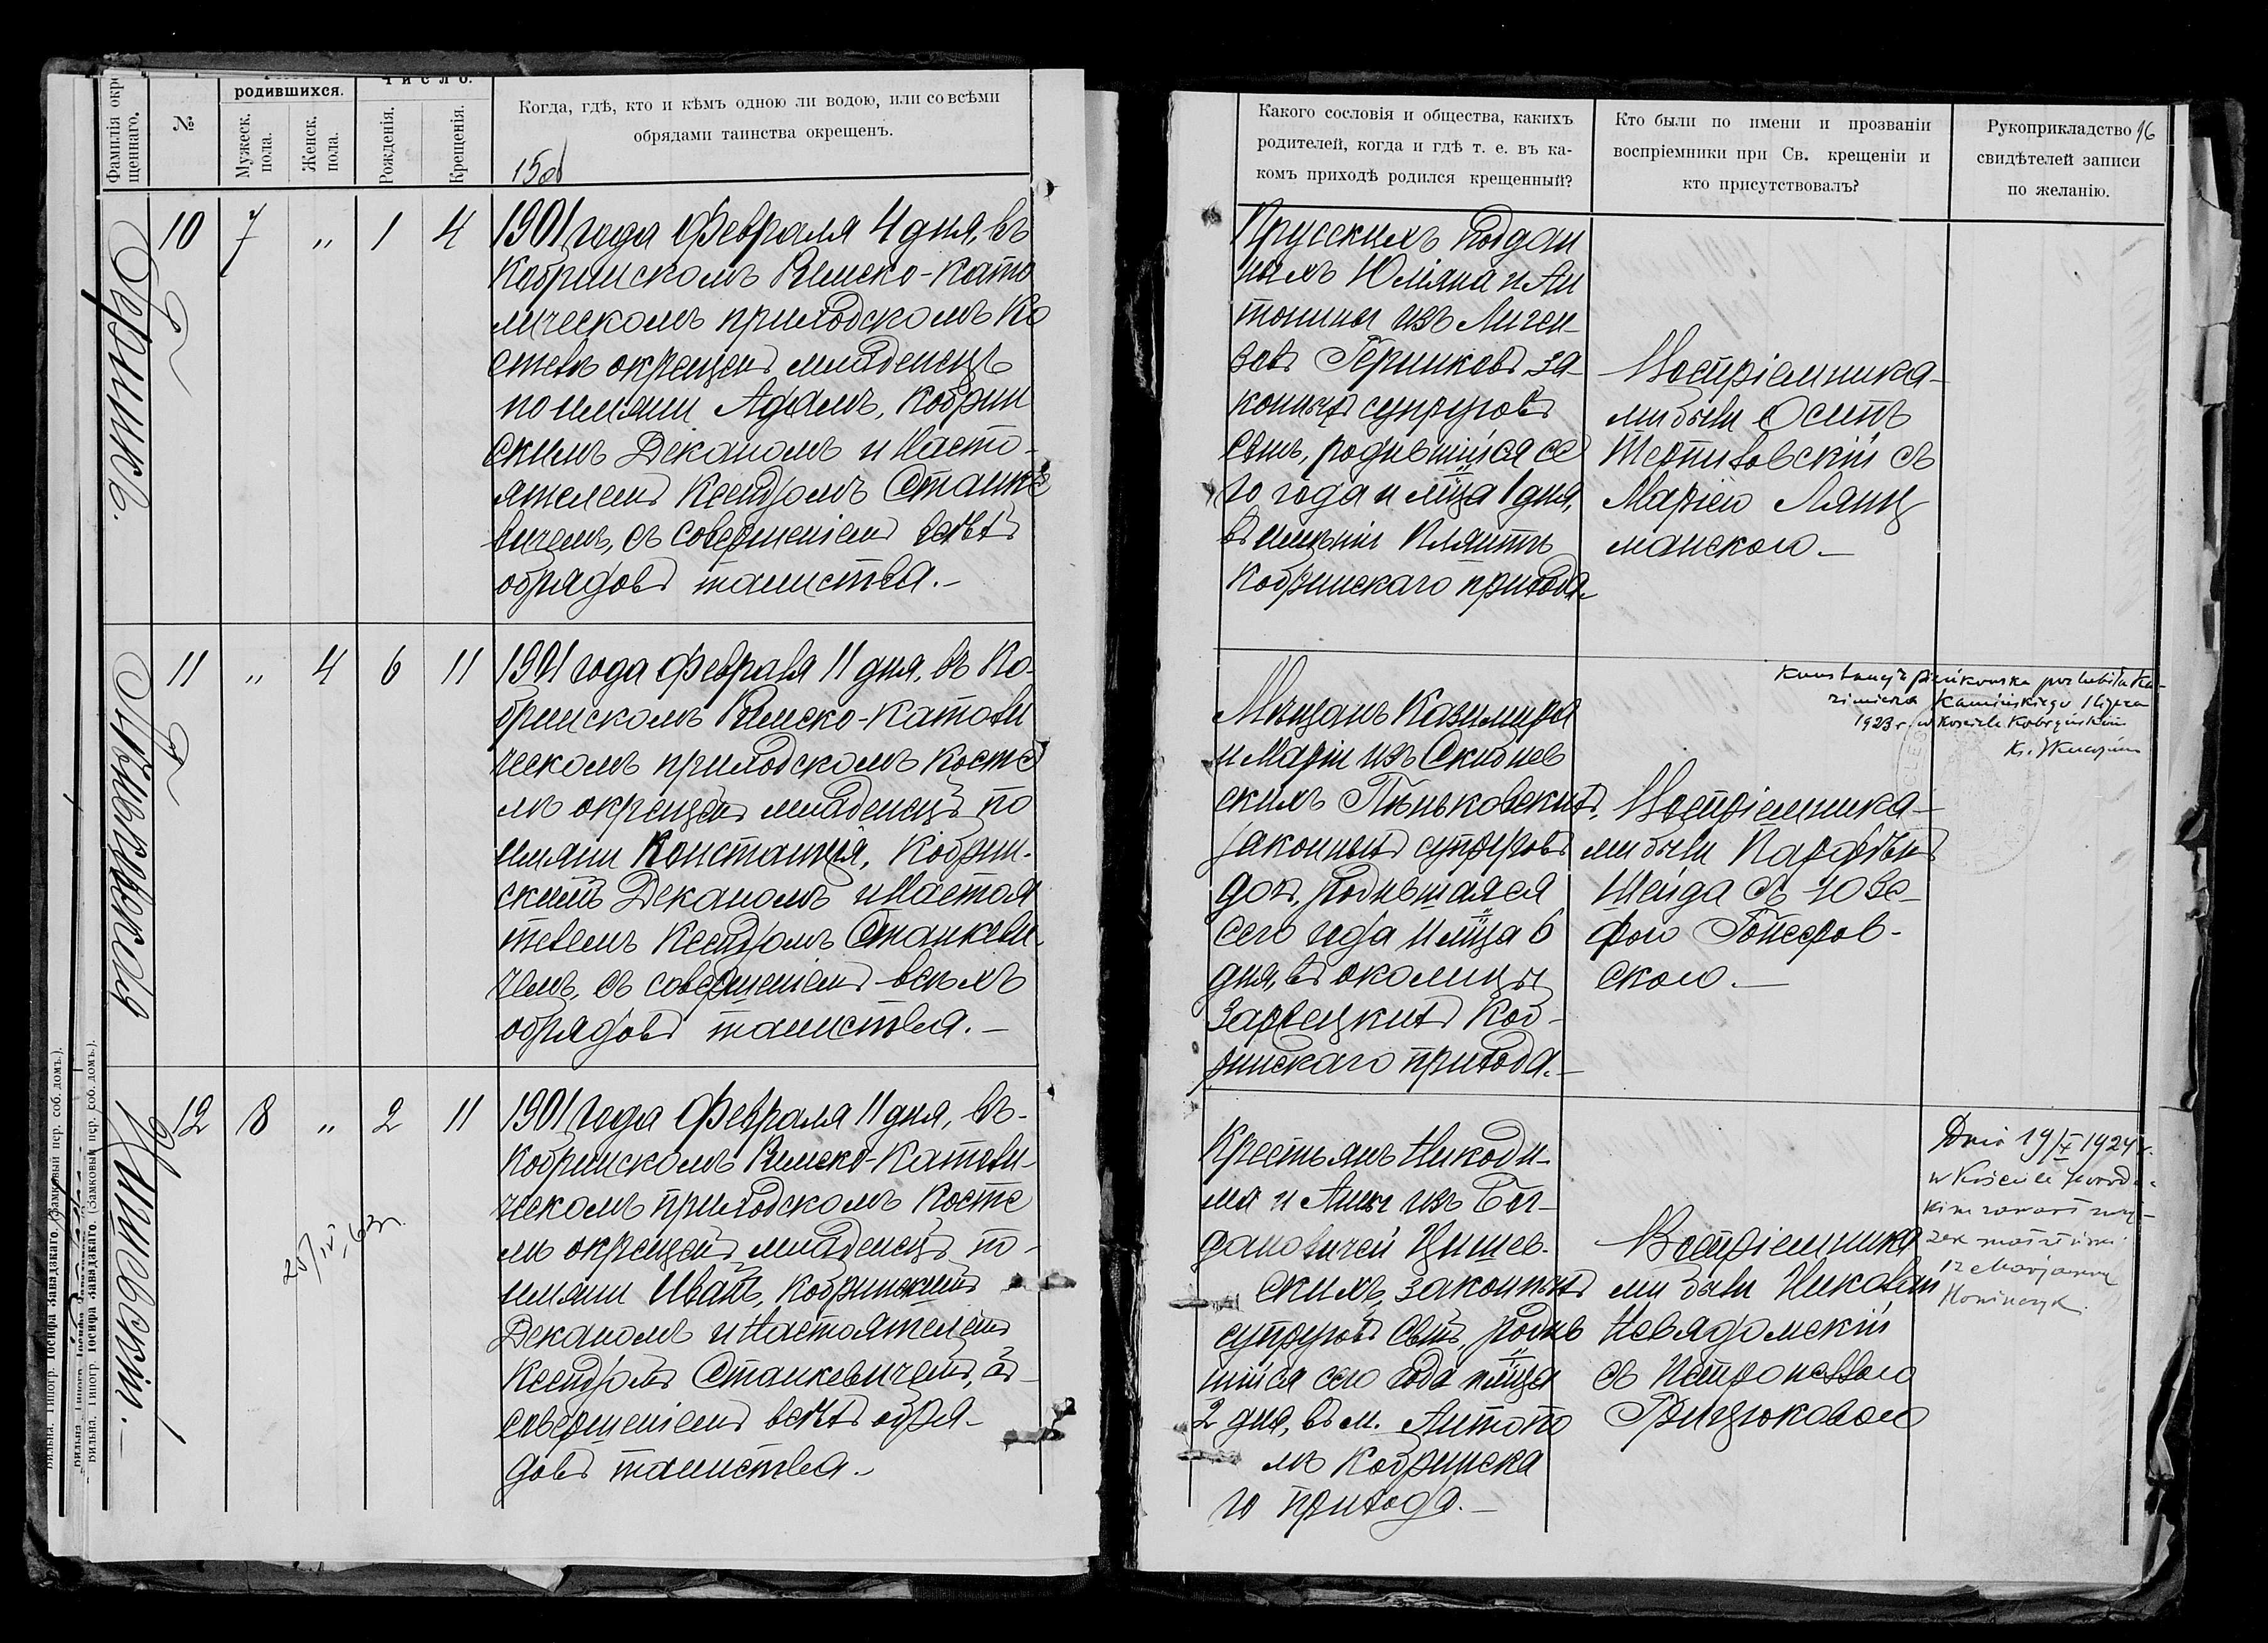 Фамилія окре
щеннаго.
№
родившихся.
Мужеск.
пола.
Женск.
пола.
Число.
Рожденія.
Крещенія.
Когда, гдѣ, кто и кѣмъ одною ли водою, или со всѣми
обрядами таинства окрещенъ.
15об
Герникъ.
10 7 „ 1 4
1901 года Февраля 4 дня, въ
Кобринскомъ Римско-Като
лическомъ приходскомъ Ко
стелѣ окрещенъ младенецъ
по имяни Адамъ, Кобрин
скимъ Деканомъ и Насто-
ятелемъ Ксендзомъ Станке
вичемъ, съ совершеніемъ всѣхъ
обрядовъ таинства.-
Пѣньковская
11 „ 4 6 11
1901 года Февраля 11 дня, въ Ко-
бринскомъ Римско-Католи
ческомъ приходскомъ Косте
лѣ окрещенъ младенецъ по
имяни Констанція, Кобрин-
скимъ Деканомъ и Настоя
телемъ Ксендзомъ Станкеви-
чемъ, съ совершеніемъ всѣхъ
обрядовъ таинства.-
12 8 „ 2 11
25/IV 63г.
1901 года Февраля 11 дня, въ-
Кобринскомъ Римско-Катали-
ческомъ приходскомъ Косте
лѣ окрещенъ младенецъ по-
имяни Иванъ, Кобринскимъ
Деканомъ и Настоятелемъ
Ксендзомъ Станкевичемъ, съ-
совершеніемъ всѣхъ обря-
довъ таинства.-
Вильна. Типогр. Іосифа Завадзкаго. (Замковый пер. соб. домъ.).
Вильна. Типогр. Іосифа Завадзкаго. (Замковый пер. соб. домъ.).
Какого сословія и общества, какихъ
родителей, когда и гдѣ т. е. въ ка-
комъ приходѣ родился крещенный?
Кто были по имени и прозваніи
воспріемники при Св. крещеніи и
кто присутствовалъ?
Рукоприкладство
свидѣтелей записи
по желанію.
16
Прусскихъ поддан
ныхъ Юліяна и Ан
тонины изъ
Герниковъ за-
конныхъ супруговъ
сынъ, родившійся се
го года и мѣца 1 дня,
въ имѣніи Плянтъ
Кобринскаго прихода.-
Воспріемника-
ми были Осипъ
съ
Маріею Лянц
манскою.-
Мѣщанъ Казимира
и Маріи изъ Скибнев
скихъ Пѣньковскихъ,
законныхъ супруговъ
дочь, родившаяся
сего года и мѣца 6
дня, въ околицы
Зарѣцкихъ Коб-
ринскаго прихода.-
Воспріемника-
ми были
Шейда съ Юзе-
фою
скою.-
Kamińskiego
1923 r. w kościele Kobryńskim
Крестьянъ Никоди-
ма и Анны изъ Бог-
дановичей
скихъ, законныхъ
супруговъ сынъ, родив
шійся сего года и мѣца
2 дня, въ м. Антопо
лѣ Кобринска
го прихода.-
Воспріемника
ми были Николай
Невядомскій
съ Петронеллою
Грицюковою
Dnia 19/X 1924 r.
w Kościele